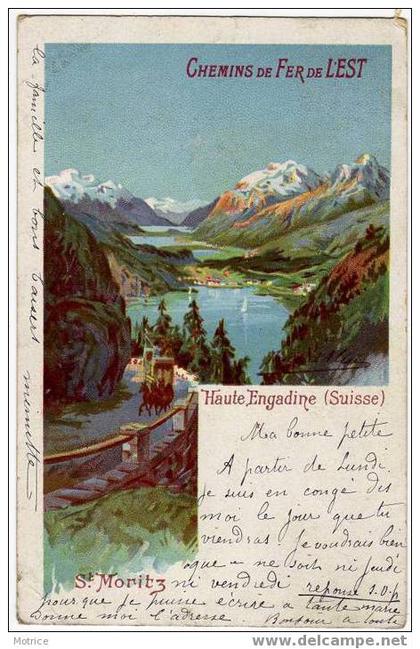 CHEMINS DE FER DE L'EST
HAUTE, ENGADINE (SUISSE)
Ma bonne petite
A partir de Lundi
je suis en congé dis
moi le jour que tu
viendras Je voudrais bien
que ne soit ni jeudi
ni vendredi réponse S.O.p
St MORITZ
pour que je puisse écrire a tante marie
Donne moi l'adresse. Bonjour a toute
la famille et bons baisers
minette
© Motrice
www.delcampe.net